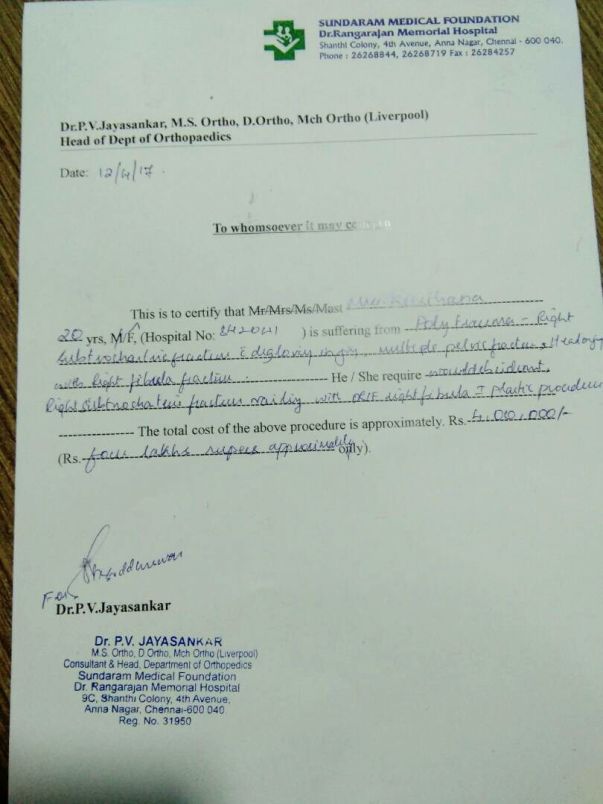 SUNDARAM MEDICAL FOUNDATION
Dr.Rangarajan Memorial Hospital
Shanthi Colony, 4th Avenue, Anna Nagar, Chennai - 600 040.
Phone : 26268844, 26268719 Fax : 26284257
Dr.P.V.Jayasankar, M.S. Ortho, D.Ortho, Mch Ortho (Liverpool)
Head of Dept of Orthopaedics
Date: 12/4/17.
To whomsoever it may concern
This is to certify that Mr/Mrs/Ms/Mast
20 yrs, M/F, (Hospital No: ) is suffering from Polytrauma - Right
Subtrochanteric fracture degloving injury, multiple pelvic fracture, Head injury
with Right fibula fracture. He / She require
Right subtrochanteric fracture nailing with ORIF right fibula plastic procedure
The total cost of the above procedure is approximately. Rs. 4,00,000/-
(Rs. four lakhs rupees approximately only).
For
Dr.P.V.Jayasankar
Dr. P.V. JAYASANKAR
M.S. Ortho, D.Ortho, Mch Ortho (Liverpool)
Consultant & Head, Department of Orthopedics
Sundaram Medical Foundation
Dr. Rangarajan Memorial Hospital
9C, Shanthi Colony, 4th Avenue,
Anna Nagar, Chennai-600 040
Reg. No. 31950